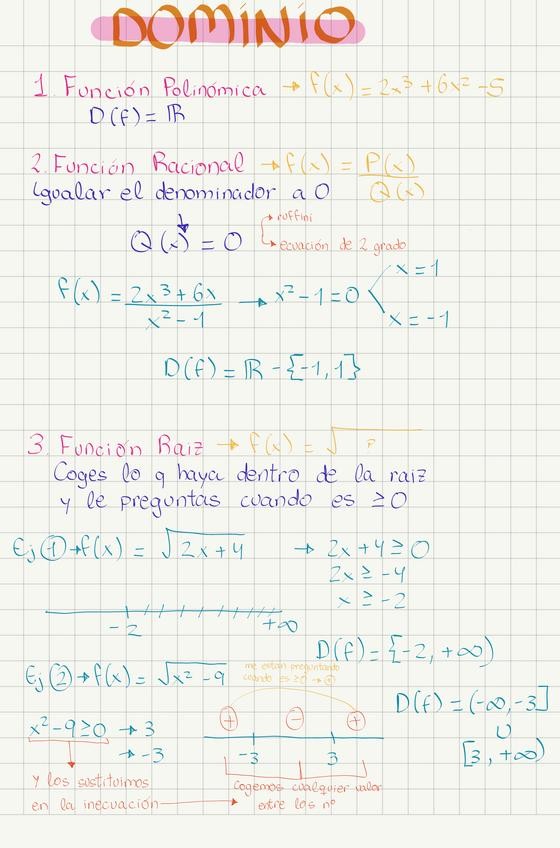 DOMINIO
1. Función Polinómica → f(x) = 2x³ + 6x² - 5
D(f) = ℝ
2. Función Racional → f(x) = P(x)/Q(x)
Igualar el denominador a 0
Q(x) = 0
→ ruffini
→ ecuación de 2 grado
f(x) = (2x³ + 6x)/(x² - 1) → x² - 1 = 0
x = 1
x = -1
D(f) = ℝ - {-1, 1}
3. Función Raiz → f(x) = √
Coges lo q haya dentro de la raiz
y le preguntas cuando es ≥ 0
Ej ① → f(x) = √(2x + 4) → 2x + 4 ≥ 0
2x ≥ -4
x ≥ -2
-2 +∞
D(f) = {-2, +∞)
Ej ② → f(x) = √(x² - 9)
me estan preguntando
cuando es ≥ 0 → ⊕
x² - 9 ≥ 0 → 3
→ -3
⊕ ⊖ ⊕
-3 3
D(f) = (-∞, -3]
∪
[3, +∞)
y los sustituimos
en la inecuación →
Cogemos cualquier valor
entre los nº